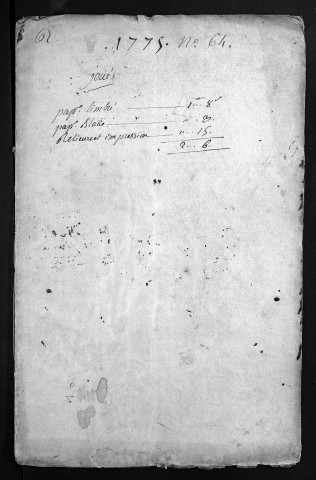 62 1775. No 64.
joué
papr timbré 1ᴴ 8ˢ
papr Blanc " 3.
Relieure et impression " 15
2 .. 6